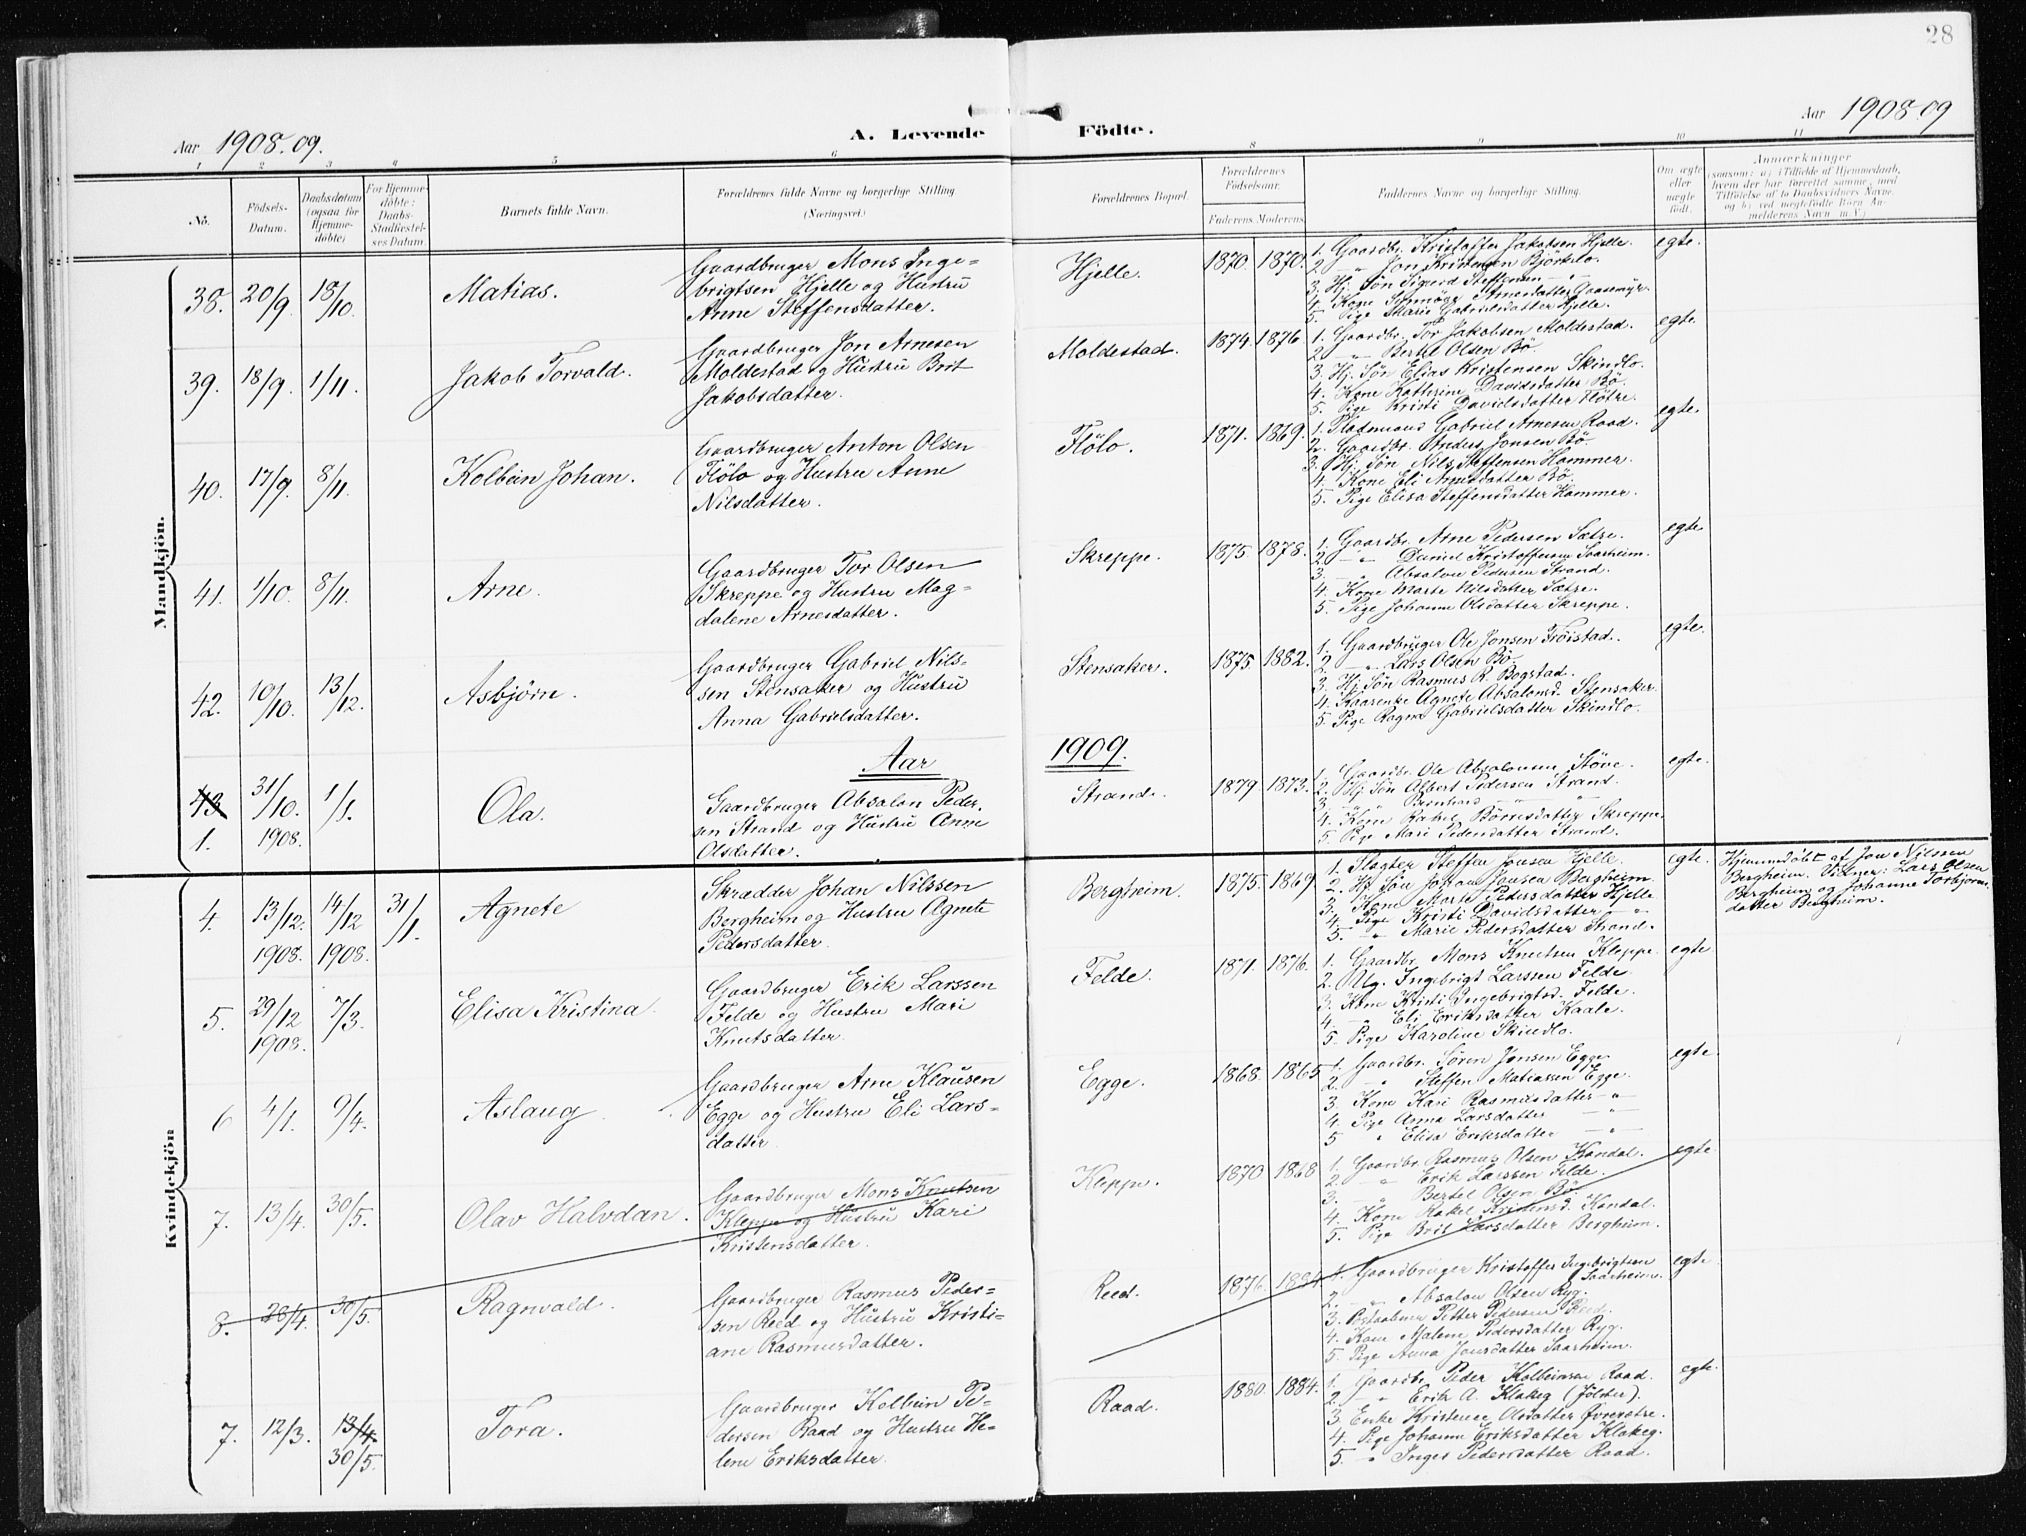 28
Aar 1908-09.
A. Levende Födte.
Aar 1908-09
1 2 3 4 5 6 8 9 10 11
No.
Födsels-Datum.
Daabsdatum (ogsaa for Hjemme-döbte)
For Hjemme-döbte: Daabs-Stadfæstel-ses Datum
Barnets fulde Navn.
Forældrenes fulde Navne og borgerlige Stilling (Næringsvei.)
Forældrenes Bopæl.
Forældrenes Födselsaar.
Faderens Moderens.
Faddernes Navne og borgerlige Stilling.
Om ægte eller uægte födt.
Anmærkninger
(saasom: a) i Tilfælde af Hjemmedaab, hvem der har forrettet samme, med Tilföielse af to Daabsvidners Navne, og b) ved uægtefödte Börn An-melderens Navn m. V.)
Mandkjön.
38. 20/9 18/10 Matias.
Gaardbruger Mons Inge-
brigtsen Hjelle og Hustru
Anne Steffensdatter.
Hjelle. 1870. 1870.
1. Gaardbr. Kristoffer Jakobsen Hjelle. egte.
2. " Jon Kristensen Björkelo.
3. Hj. Søn Sigurd Steffensen "
4. Kone Synnöge Arnesdatter Daasemyr.
5. Pige Marie Gabrielsdatter Hjelle.
39. 18/9. 1/11. Jakob Torvald.
Gaardbruger Jon Arnesen
Moldestad og Hustru Brit
Jakobsdatter.
Moldestad. 1874. 1876.
1. Gaardbr. Tor Jakobsen Moldestad. egte
2. " Bertel Olsen Bö.
3. Hj. Søn Elias Kristensen Skindlo.
4. Kone Kathrine Davidsdatter Bö.
5. Pige Kristi Davidsdatter Flötre.
40. 17/9. 8/11. Kolbein Johan.
Gaardbruger Anton Olsen
Flölo og Hustru Anne
Nilsdatter.
Flölo. 1871. 1869.
1. Kaarmand Gabriel Arnesen Raad. egte.
2. Gaardbr. Anders Jonsen Bö.
3. Hj. Søn Nils Steffensen Hammer.
4. Kone Eli Arnesdatter Bö.
5. Pige Elisa Steffensdatter Hammer.
41. 1/10. 8/11. Arne.
Gaardbruger Tor Olsen
Skreppe og Hustru Mag-
dalene Arnesdatter.
Skreppe. 1875. 1878.
1. Gaardbr. Arne Pedersen Sætre. egte
2. " Daniel Kristoffersen Saarheim.
3. " Absalon Pedersen Strand.
4. Kone Marte Nilsdatter Sætre.
5. Pige Johanne Olsdatter Skreppe.
42. 10/10. 13/12. Asbjørn.
Gaardbruger Gabriel Nils-
sen Stensaker og Hustru
Anna Gabrielsdatter.
Stensaker. 1875 1882.
1. Gaardbruger Ole Jonsen Troistad. egte.
2. " Lars Olsen Bö.
3. Hj. Søn Rasmus R. Bogstad.
4. Kaarenke Agnete Absalonsd. Stensaker.
5. Pige Ragna Gabrielsdatter Skindlo.
Aar 1909.
43 1. 31/10. 1908. 1/1. Ola.
Gaardbruger Absalon Peder-
sen Strand og Hustru Anne
Olsdatter.
Strand. 1879 1873.
1. Gaardbr. Ole Absalonsen Støve. egte.
2. Hj. Søn Albert Pedersen Strand.
3. " Bernhard " "
4. Kone Rakel Börresdatter Skreppe.
5. Pige Mari Pedersdatter Strand.
Kvindekjön
4. 13/12. 1908. 14/12 1908. 31/1. Agnete
Skrædder Johan Nilssen
Bergheim og Hustru Agnete
Pedersdatter.
Bergheim. 1875. 1869.
1. Slagter Steffen Jonsen Hjelle. egte.
2. Hj. Søn Johan Jonsen Bergheim.
3. Kone Marte Pedersdatter Hjelle.
4. Pige Kristi Davidsdatter "
5. " Marie Pedersdatter Strand.
Hjemmedøbt af Jon Nilssen
Bergheim. Vidner: Lars Olsen
Bergheim og Johanne Torbjörns
datter Bergheim.
5. 29/12 1908. 7/3. Elisa Kristina.
Gaardbruger Erik Larssen
Felde og Hustru Mari
Knutsdatter.
Felde. 1871. 1876.
1. Gaardbr. Mons Knutsen Kleppe. egte
2. Ug. Ingebrigt Larssen Felde.
3. Kone Kristi Ingebrigtsd. Felde.
4. " Eli Eriksdatter Kaale.
5. Pige Karoline Skindlo.
6 4/1. 9/4. Aslaug
Gaardbruger Arne Klausen
Egge og Hustru Eli Lars-
datter
Egge. 1868. 1865
1. Gaardbr. Søren Jonsen Egge. egte.
2. " Steffen Matiassen Egge.
3. Kone Kari Rasmusdatter "
4. Pige Anna Larsdatter "
5 " Elisa Eriksdatter "
7. 13/4. 30/5. Olav Halvdan.
Gaardbruger Mons Knutsen
Kleppe og Hustru Kari
Kristensdatter.
Kleppe. 1870 1868
1. Gaardbr. Rasmus Olsen Kandal. egte
2. " Erik Larssen Felde.
3. " Bertel Olsen Bö
4. Kone Rakel Kristensd. Kandal.
5. Pige Brit Larsdatter Bergheim.
8. 28/4. 30/5. Ragnvald.
Gaardbruger Rasmus Peder-
sen Reed og Hustru Kristi-
ane Rasmusdatter.
Reed. 1876. 1884
1. Gaardbruger Kristoffer Ingebrigtsen Saarheim. egte
2. " Absalon Olsen Ryg.
3. Postaabner Petter Pedersen Reed.
4. Kone Malene Pedersdatter Ryg.
5. Pige Anna Jonsdatter Saarheim.
7. 12/3. 13/4. 30/5. Tora.
Gaardbruger Kolbein Pe-
dersen Raad og Hustru He-
lene Eriksdatter.
Raad. 1880. 1884.
1. Gaardbr. Peder Kolbeinsen Raad. egte.
2. " Erik A. Klakeg (Jölster).
3. Enke Kristence Olsdatter Øvresætre.
4. Pige Johanne Eriksdatter Klakeg.
5. " Inger Pedersdatter Raad.